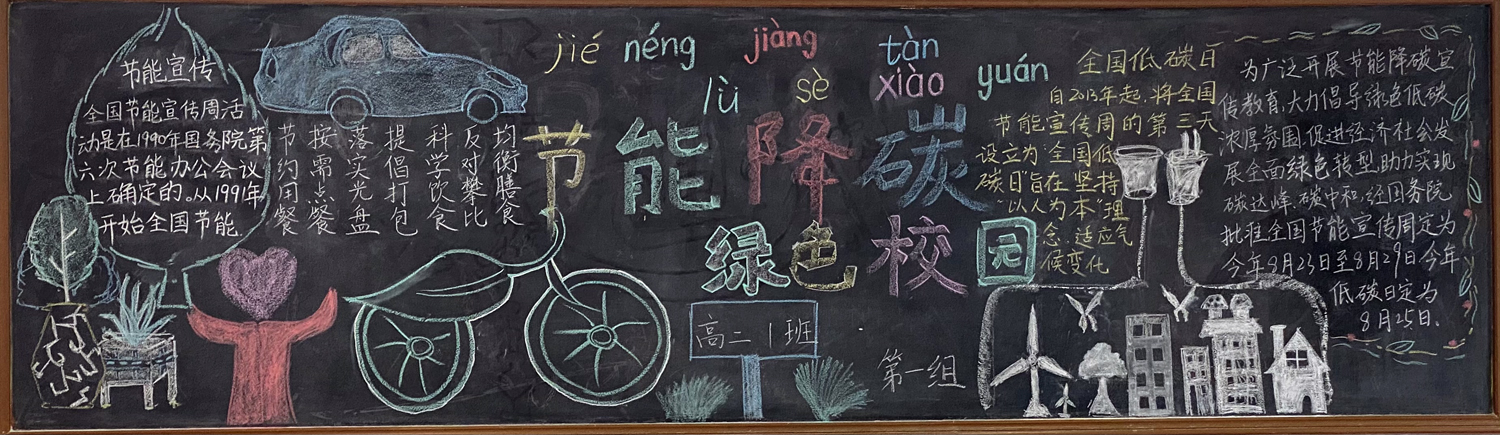 节能宣传
全国节能宣传周活
动是在1990年国务院第
六次节能办公会议
上确定的。从1991年
开始全国节能
节约用餐
按需点餐
落实光盘
提倡打包
科学饮食
反对攀比
均衡膳食
jié néng jiàng tàn
lǜ sè xiào yuán
节能降碳
绿色校园
高二1班
第一组
全国低碳日
自2013年起,将全国
节能宣传周的第三天
设立为"全国低
碳日"旨在坚持
"以人为本"理
念,适应气
候变化
为广泛开展节能降碳宣
传教育,大力倡导绿色低碳
浓厚氛围,促进经济社会发
展全面绿色转型,助力实现
碳达峰,碳中和,经国务院
批准全国节能宣传周定为
今年8月23日至8月29日今年
低碳日定为
8月25日.